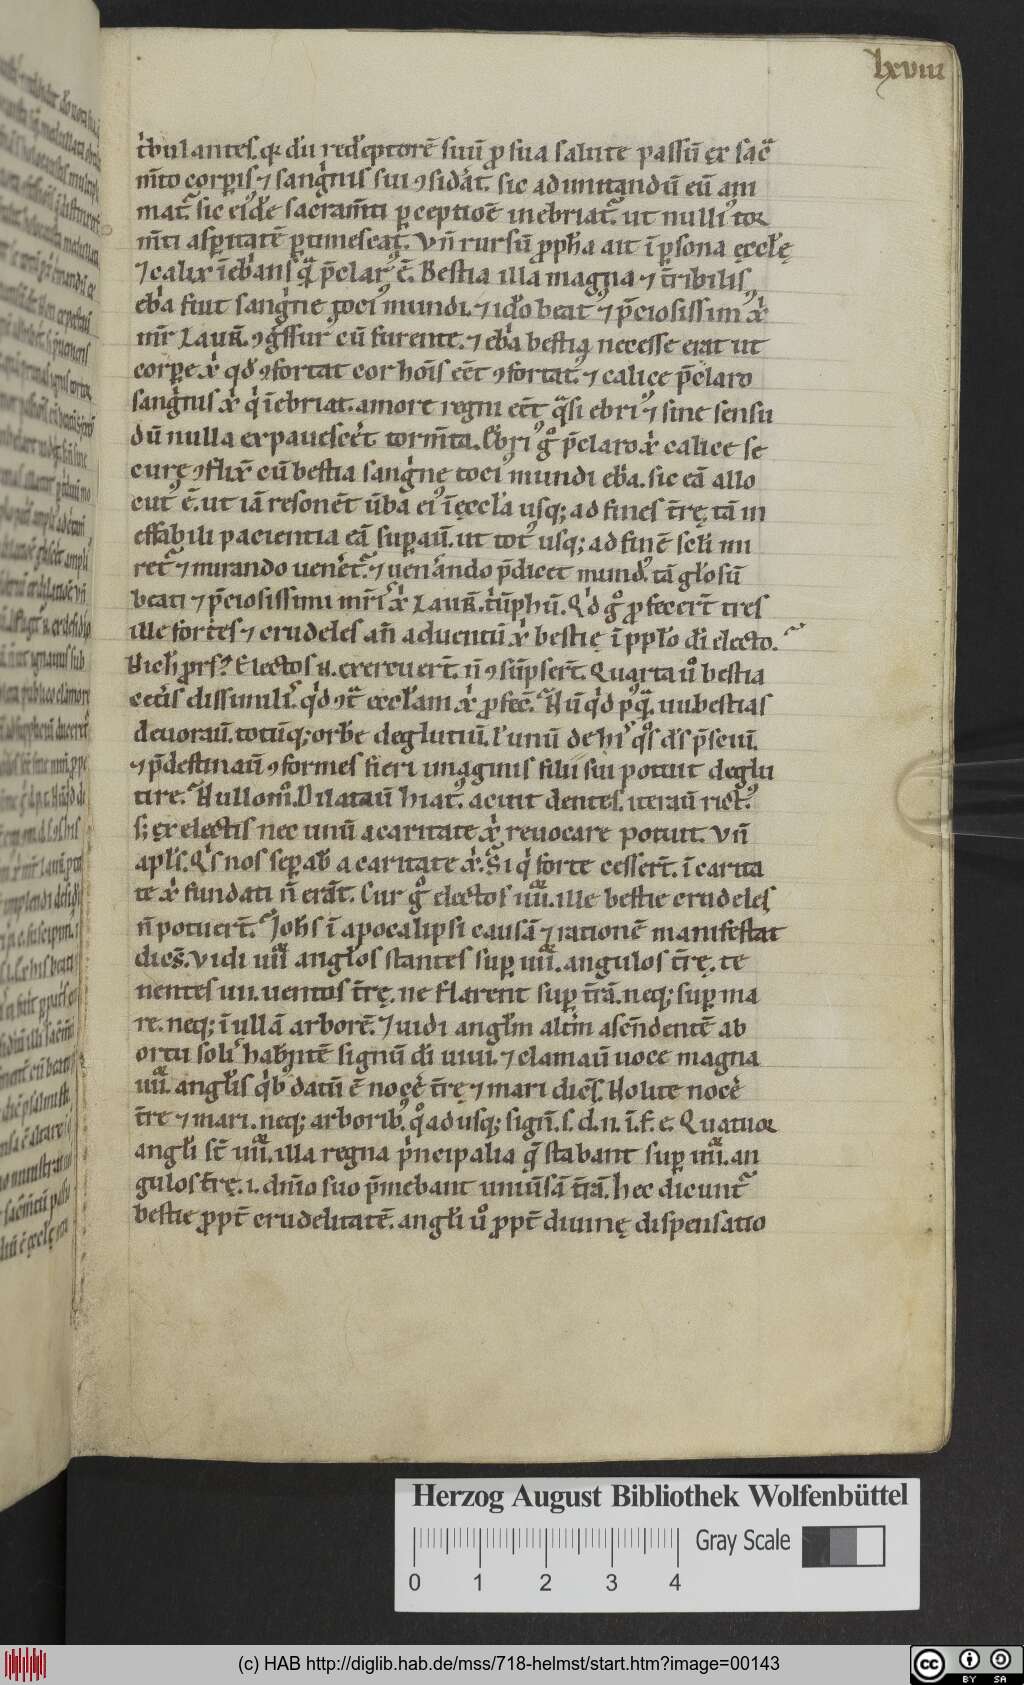 lxviii
t̾bulantes. qꝛ dū red̾eptorē suū ꝓ sua salute passū ex sac̄
m̄to corꝑis ⁊ sang̾nis sui ꝯsid̾at. sic ad imitandū eū ani
mat̾. sic ei᷒d̾e sacram̄ti ꝑceptiōe inebriat̾. ut nulli᷒ toꝛ
m̄ti asꝑitatē ꝑtimescat. Vn̄ rursū ꝓph̄a ait ī ꝑsona ęccl̾ę
⁊ calix īeb̾ans q̄ p̄clar᷒ ē. Bestia illa magna ⁊ t̄ribilis
eb̾a fiut sang̾ne toci᷒ mundi. ⁊ id̾o beat᷒ ⁊ p̄ciosissim᷒ x̾
mr̄ Laur̄. ꝯg̾ssur᷒ cū furente. ⁊ eb̾a bestia necesse erat ut
corꝑe x̾ qd̾ ꝯfortat cor hoīs eēt ꝯfortat᷒. ⁊ calice p̄claro
sang̾nis x̾ q̾ īebriat. amore regni eēt q̄si ebri᷒ ⁊ sine sensu
dū nulla expauesc̾et torm̄ta. Ebri᷒ g̊ p̄claro x̾ calice se
curę ꝯflix̄ cū bestia sang̾ne toci᷒ mundi eb̾a. sic eā allo
cut᷒ ē. ut iā resonēt ūba ei᷒ ī ęccl̾a usq; ad fines t̄rę. tā in
effabili pacientia eā suꝑaū. ut tot᷒ usq; ad finē scl̾i mi
ret̾ ⁊ mirando uen̾et̾. ⁊ uen̾ando p̄dicet mund᷒ tā gl̾osū
beati ⁊ p̄ciosissimi mr̄is x̾ Laur̄. t̾ūphū. Q̾d g̊ ꝓfecer̄t tres
ille fortes ⁊ crudeles an̄ aduentū x̾ bestię ī ppl̾o di̾ electo.
Nich̾ ꝓrs᷒? Electos n̄. exercuer̄t. n̄ ꝯsūpser̄t. Quarta u̾o bestia
cet̾is dissimilis. q̾d ꝯt̄ eccl̾am x̾ ꝓfec̄. Nū q̾d p᷒q̄. iiibestias
deuoraū. totūq; orbē deglutiū. l̾ unū de his q̊s d̄s p̄sciū.
⁊ p̄destinaū ꝯformes fieri imaginis filii sui potuit deglu
tire. Nullom̊. Dilataū hiat᷒. acuit dentes. iteraū rict᷒.
s; ex electis nec unū a caritate x̾ reuocare potuit. Vn̄
apl̾s. Q̾s nos seꝑab̾ a caritate x̾. Si q̾ forte cesser̄t. ī carita
te x̾ fundati n̄ erāt. Cur g̊ electos iiii. ille bestie crudeles
n̄ potuer̄t. Joh̄s ī apocalipsi causā ⁊ rationē manifestat
dices̄. Vidi iiii angl̾os stantes suꝑ iiii. angulos t̄rę. te
nentes iiii. uentos t̄rę. ne flarent suꝑ t̄rā. neq; suꝑ ma
re. neq; ī ullā arborē. ⁊ uidi angl̾m alt̾m asc̄endentē ab
ortu solis hab̄ntē signū di̾ uiui. ⁊ clamaū uoce magna
iiii. angl̾is q̾b᷒ datū ē noc̾e t̄rę ⁊ mari dices̄. Nolite noc̾e
t̄re ⁊ mari. neq; arborib᷒. q̊adusq; sign̄. s. d. n. ī. f. e. Quatuoꝛ
angl̾i st̄ iiii. illa regna p̾ncipalia q̄ stabant suꝑ iiii. an
gulos t̄rę. i. dm̄io suo p̄mebant uniūsā t̄rā. hec dicunt̾
bestie ꝓpt̄ crudelitatē. angl̾i u̾o ꝓpt̄ diuinę dispensatio
Herzog August Bibliothek Wolfenbüttel
Gray Scale
0 1 2 3 4
(c) HAB http://diglib.hab.de/mss/718-helmst/start.htm?image=00143
cc BY SA